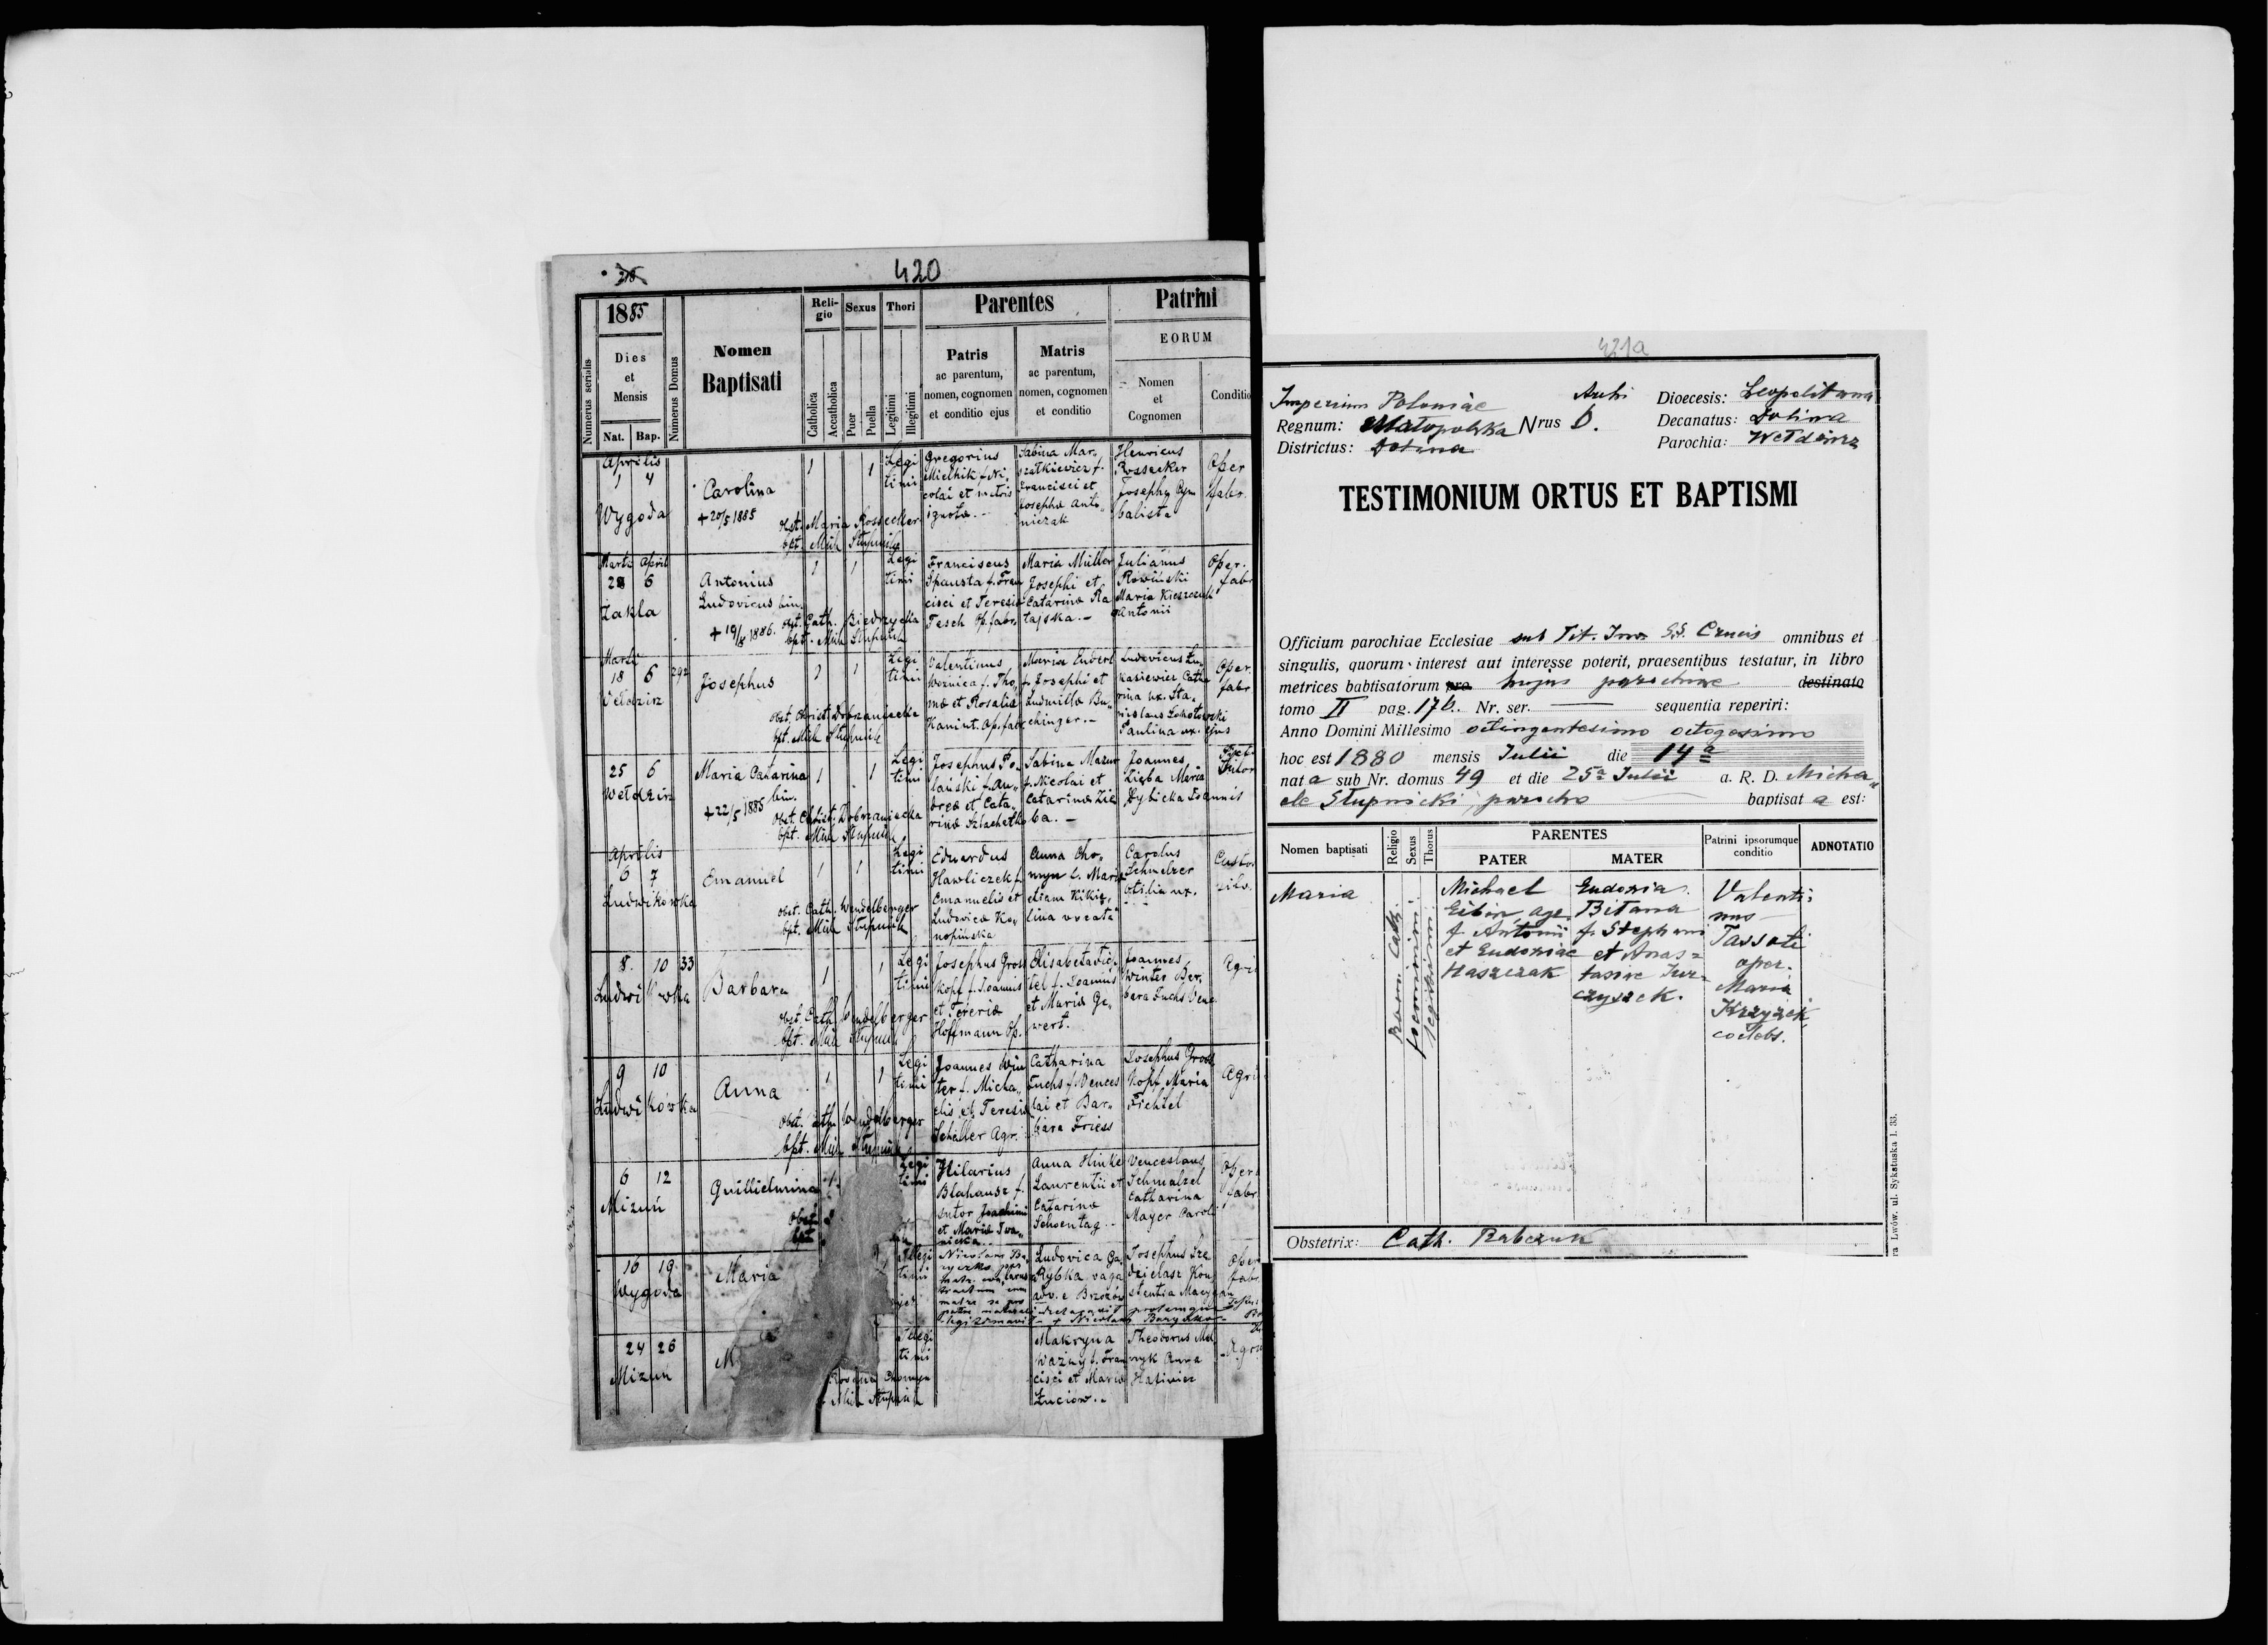 420
1885
Numerus serialis
Dies
et
Mensis
Nat. Bap.
Numerus Domus
Nomen
Baptisati
Reli-
gio
Catholica
Accatholica
Sexus
Puer
Puella
Thori
Legitimi
Illegitimi
Parentes
Patris
ac parentum,
nomen, cognomen
et conditio ejus
Matris
ac parentum,
nomen, cognomen
et conditio
Patrini
EORUM
Nomen
et
Cognomen
Conditio
Aprilis
1 4
Wygoda
Carolina
+ 20/5 1885
1 1
Legi
timi
Obst. Maria Rossecker
bpt. Mich Stupnick
Gregorius
Mielnik f. Ni-
colai et matris
ignotæ.-
Sabina Mar-
szatkiewicz f.
Francisci et
Josephæ Anto-
niczak
Henricus
Rossecker
Josepha Cym
balista
Oper
fabr.
Martii April
28 6
Zakla
Antonius
Ludovicus bin.
+ 19/8 1886.
1 1
Legi
timi
obst. Cath. Biedrzycka
bpt. Mich Stupnick
Franciscus
Spausta f. Fran
cisci et Teresiæ
Tesch Op. fabr.
Maria Müller
Josephi et
Catarinæ Ra
tajska.-
Julianus
Rowiński
Maria Kieszczuk
Antonii
Oper.
fabr
Martii
18 6 292
Wełdzirz
Josephus
1 1
Legi
timi
obst. Christ. Dobrzaniecka
bpt. Mich Stupnick
Valentinus
Woznica f. Tho-
mæ et Rosaliæ
Kanint. Op. fabr
Maria Enderl
f. Josephi et
Ludmillæ Bu-
chinger.-
Ludovicus Lu-
kasiewicz Catha
rina ux. Sta-
nislaus Sokołowski
Paulina ux. ejus
Oper.
fabr
25 6
Wełdzirz
Maria Catarina
bin.
+ 22/5 1885
1 1
Legi
timi
Obst. Christ. Dobrzaniecka
bpt. Mich Stupnick
Josephus Po-
lański f. An-
dreæ et Cata-
rinæ Szlachetko
Sabina Mazur
f. Nicolai et
Catarinæ Zie
ba.-
Joannes
Zięba Maria
Dybicka Joannis
Aprilis
6 7
Ludwikowka
Emanuel
1 1
Legi
timi
obst. Cath. Wendelberger
bpt. Mich Stupnick
Eduardus
Hawliczek f.
Emanuelis et
Ludovicæ Ko-
nopińska
Anna Cho-
myn l. Mariæ
etiam Kikie-
lina vocata
Carolus
Schmelzer
Otilia ux.
Custos
silv.
8. 10 33
Ludwikowka
Barbara
1 1
Legi
timi
Obst. Cath. Wendelberger
bpt. Mich Stupnick
Josephus Gross
kopf f. Joannis
et Teresiæ
Hoffmann Op.
Elisabeta Fich
tel f. Joannis
et Mariæ Ge-
wert.
Joannes
Winter Bar-
bara Fuchs Venc
Agri
9 10
Ludwikówka
Anna
1 1
Legi
timi
Obst. Cath. Wendelberger
bpt. Mich Stupnick
Joannes Win
ter f. Micha-
elis et Teresiæ
Scheller Agr.
Catharina
Fuchs f. Vences
lai et Bar-
bara Friess
Josephus Gross
kopf Maria
Fichtel
Agri
6 12
Mizuń
Guilielmina
1
Legi
timi
Obst.
bpt.
Hilarius
Blahausz f.
sutor Joachimi
et Mariæ Iwa-
nicka
Anna Hinke
Laurentii et
Catarinæ
Schoentag.-
Venceslaus
Schmalzel
Catharina
Mayer Carol
Oper
fabr
16 19
Wygoda
Maria
Illegi
timi
Ludovica Ga-
Rybka vaga
adv. e Brzozów
Josephus Sze
dzielasz Kon
stentia Maczy
Oper
fabr.
24 26
Mizuń
M
Illegi
timi
Rosalia Chomyn
Mich Stupnick
Makryna
Wazny f. Fran
cisci et Mariæ
Łuciów.-
Theodorus Mel
nyk Anna
Hasiwicz
Agri
421a
Imperium Poloniae
Regnum: Małopolska
Districtus: Dolina
Nrus 6.
Archi Dioecesis: Leopolitana
Decanatus: Dolina
Parochia: Wełdzirz
TESTIMONIUM ORTUS ET BAPTISMI
Officium parochiae Ecclesiae sub Tit. Inv. SS. Crucis omnibus et
singulis, quorum interest aut interesse poterit, praesentibus testatur, in libro
metrices babtisatorum pro hujus parochiae destinato
tomo II pag. 176. Nr. ser. — sequentia reperiri:
Anno Domini Millesimo octingentesimo octogesimo
hoc est 1880 mensis Iulii die 14a
nat a sub Nr. domus 49 et die 25a Iulii a. R. D. Micha-
ele Stupnicki parocho baptisat a est:
Nomen baptisati
Religio
Sexus
Thorus
PARENTES
PATER
MATER
Patrini ipsorumque
conditio
ADNOTATIO
Maria
rom. cath.
foeminini
legitimi
Michael
Eibin, agr.
f. Antonii
et Eudoxiae
Haszczak
Eudoxia
Bitana
f. Stephani
et Anas-
tasiae Jur-
czyszek.
Valenti-
nus
Tassoti
oper.
Maria
Krzyżek,
coelebs.
Obstetrix: Cath. Babczuk
ra Lwów, ul. Sykstuska 1. 33.